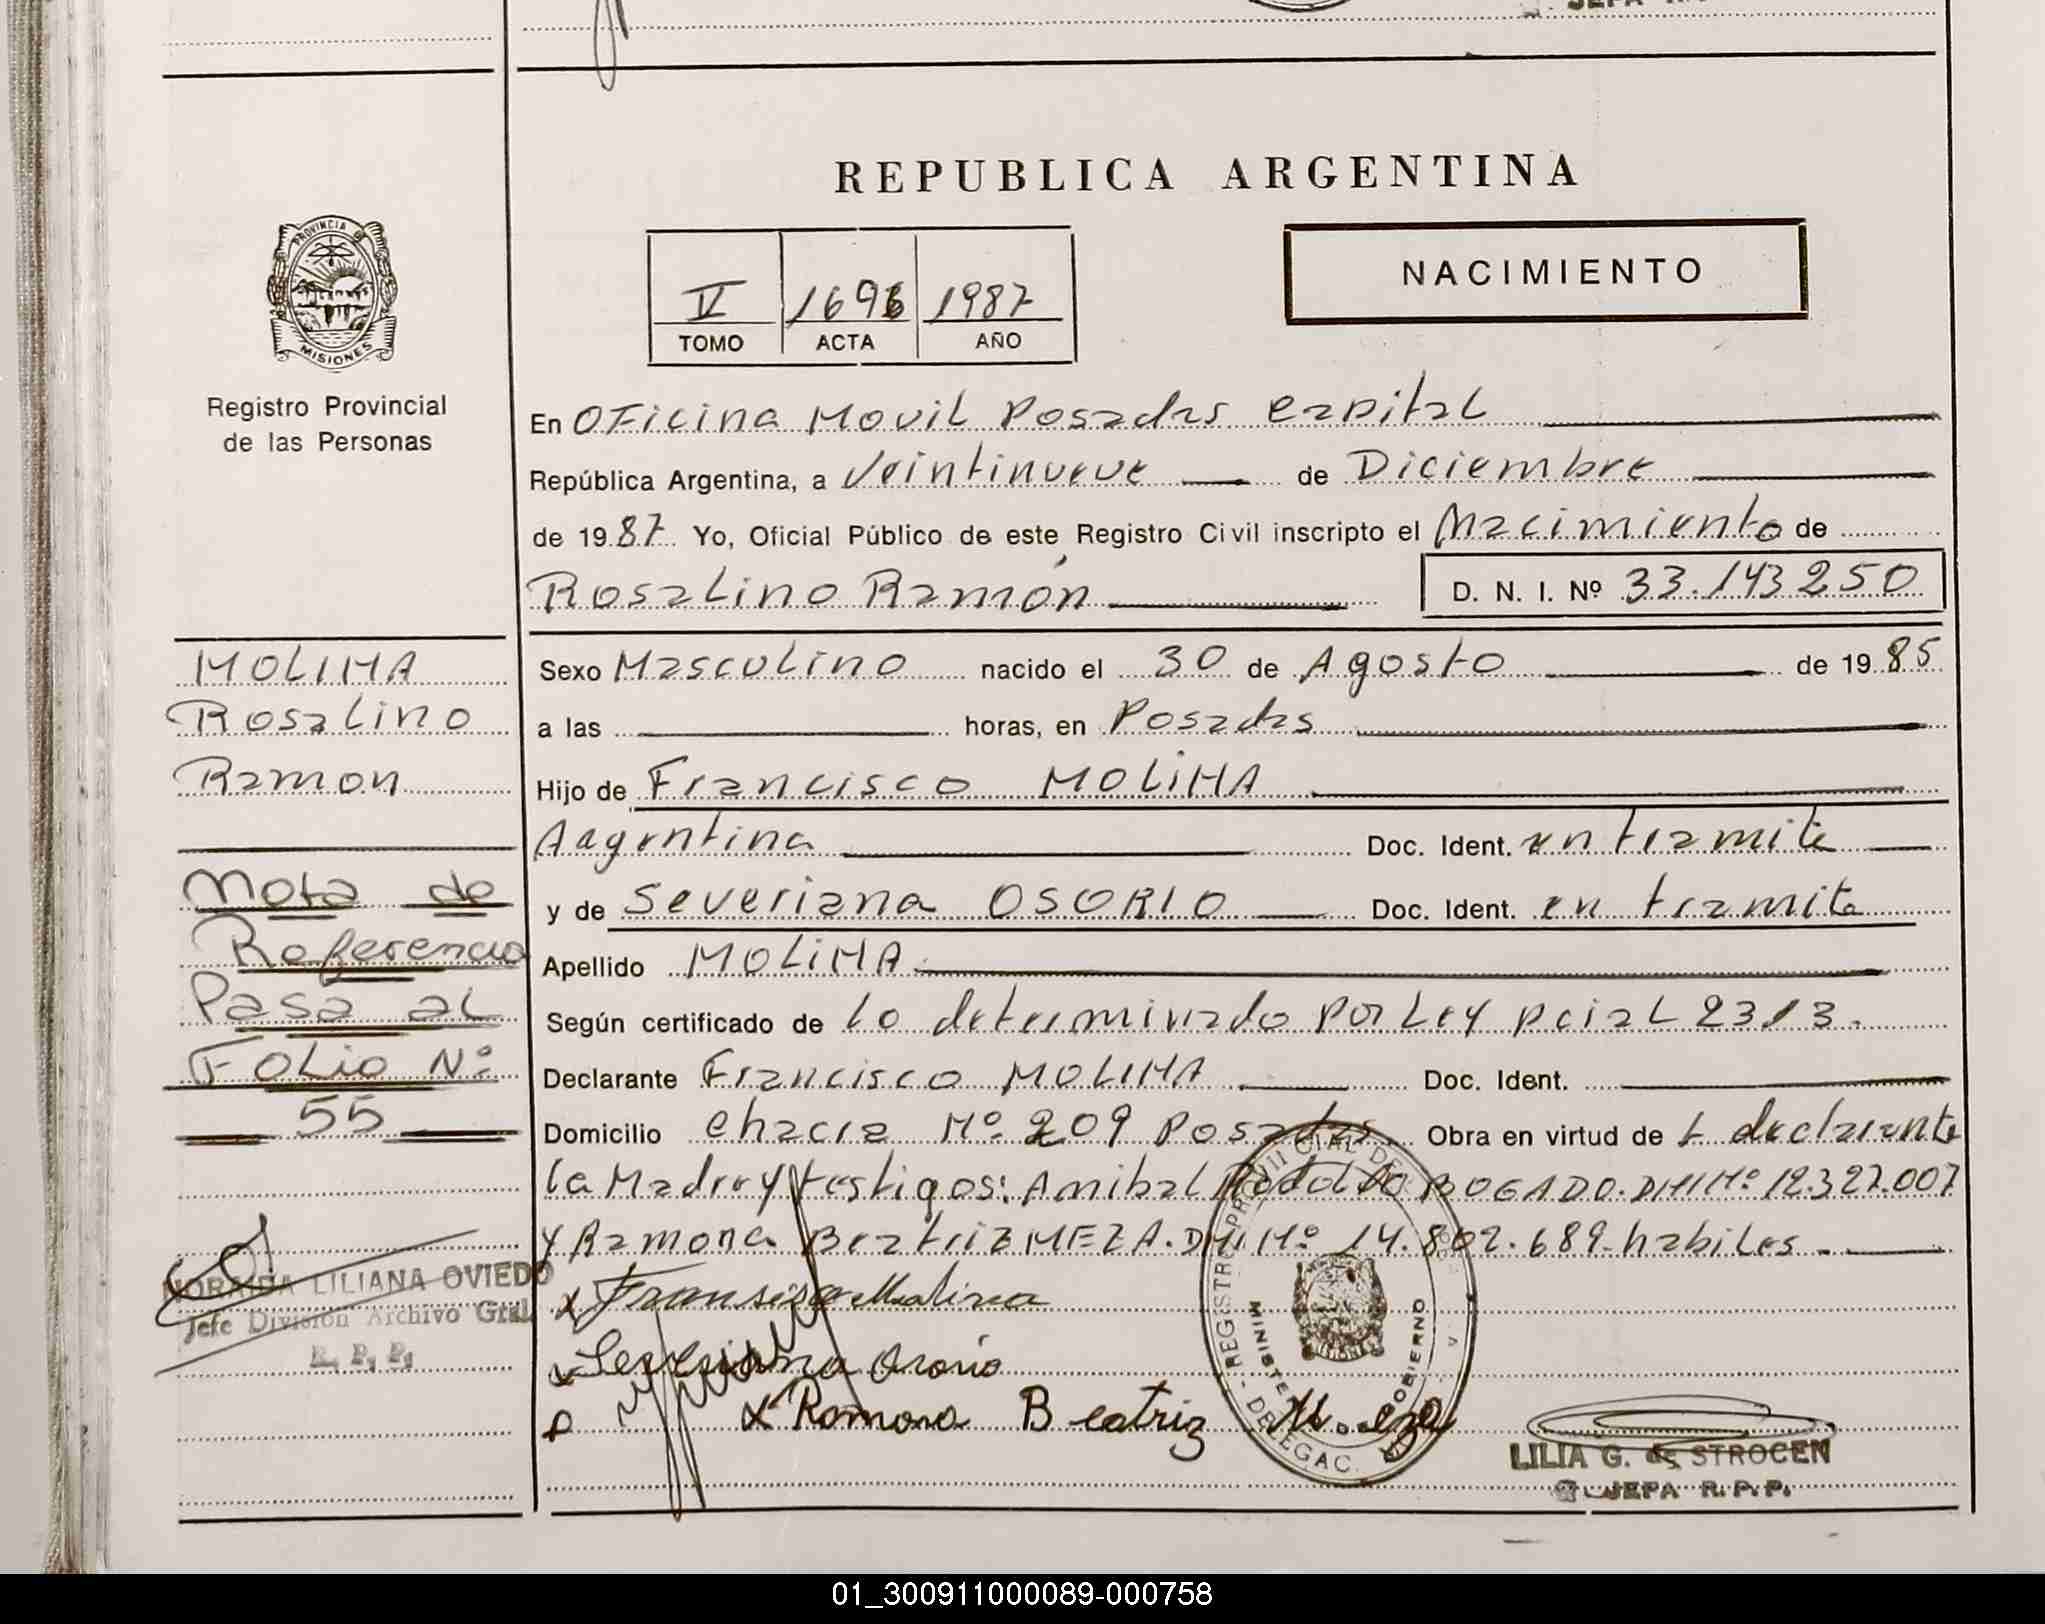 REPUBLICA ARGENTINA
NACIMIENTO
V 1696 1987
TOMO ACTA AÑO
PROVINCIA DE
MISIONES
Registro Provincial
de las Personas
En Oficina Movil Posadas Capital
República Argentina, a Veintinueve de Diciembre
de 1987 Yo, Oficial Público de este Registro Civil inscripto el Nacimiento de
Rosalino Ramón D. N. I. Nº 33.143250
MOLINA
Rosalino
Ramon
Sexo Masculino nacido el 30 de Agosto de 1985
a las horas, en Posadas
Hijo de Francisco MOLINA
Argentina Doc. Ident. en tramite
y de Severiana OSORIO Doc. Ident. en tramite
Apellido MOLINA
Según certificado de lo determinado por Ley pcial 2313.
Declarante Francisco MOLINA Doc. Ident.
Domicilio Chacra Nº 209 Posadas Obra en virtud de l declarante
la Madre y testigos: Anibal Rodolfo BOGADO. DNI Nº 12.327.007
y Ramona Beatriz MEZA. DNI Nº 14.802.689. habiles
Nota de
Referencia
Pasa al
Folio Nº
55
NORMA LILIANA OVIEDO
Jefe División Archivo Gral.
R. P. P.
x Fransisco Molina
x Severiana Osorio
x Ramona Beatriz Meza
REGISTRO PROVINCIAL DE
MINISTERIO DE GOBIERNO
LILIA G. de STROCEN
JEFA R.P.P.
01_300911000089-000758